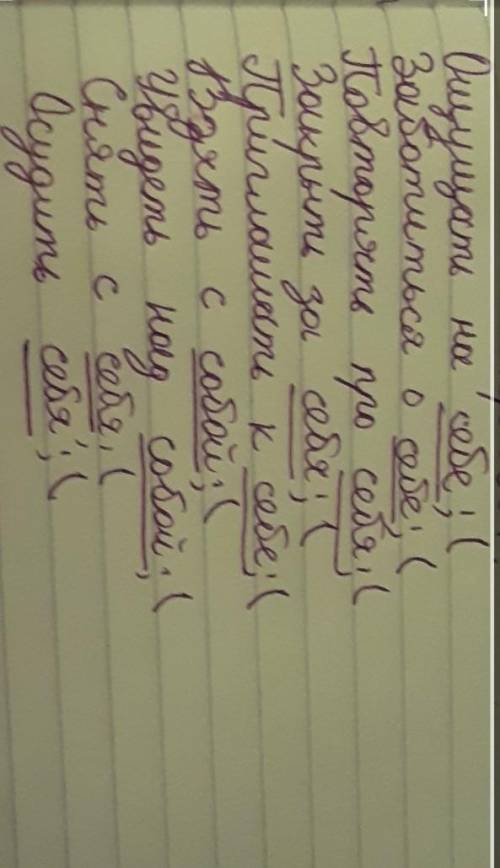 Ощущать на себе; (
Заботиться о себе; (
Повторять про себя; (
Закрыть за себя; (
Приглашать к себе; (
Взять с собой; (
Увидеть над собой; (
Снять с себя; (
Осудить себя; (